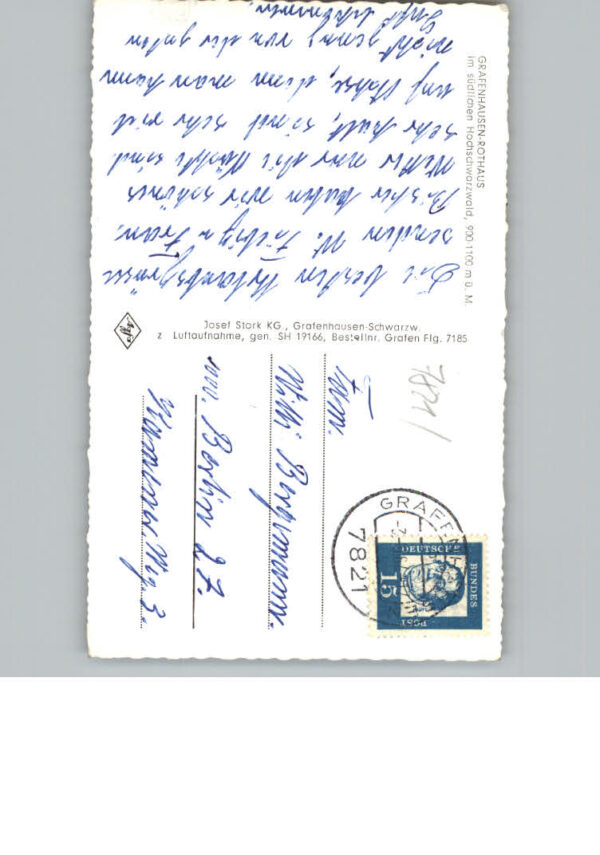 GRAFENHAUSEN-ROTHAUS
im südlichen Hochschwarzwald, 900-1100 m ü. M.
Die besten Urlaubsgrüsse
senden W. u. Frau.
Bisher haben wir schönes
Wetter nur die Nächte sind
sehr kalt, sind sehr viel
auf Achse, denn man kann
nicht genug von der guten
Luft
Josef Stark KG., Grafenhausen-Schwarzw.
z Luftaufnahme, gen. SH 19166, Bestellnr. Grafen Flg. 7185
7821
Fam.
Willi Bergmann
1000 Berlin 27.
Weg 3.
GRAFENH
7821
DEUTSCHE
BUNDES
POST
15